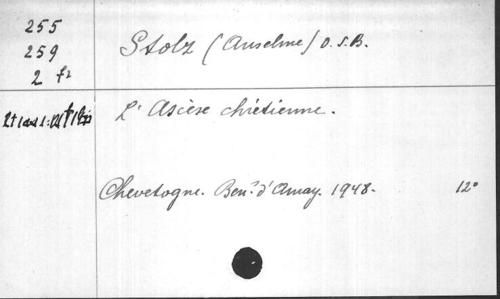 255
259
2 f2
Stolz (Anselme) O.S.B.
L'Ascèse chrétienne.
Chevetogne. Bén. d'Amay. 1948.
12°